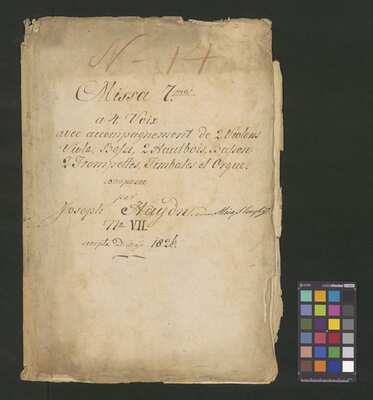 N - 14
Missa 7.
a 4 Voix
avec accompagnement de 2 Violons
Viola, Basse, 2 Hautbois, Basson
2 Trompettes, Timbales et Orgue.
composée
par
Joseph Haydn.
No VII.
1826.